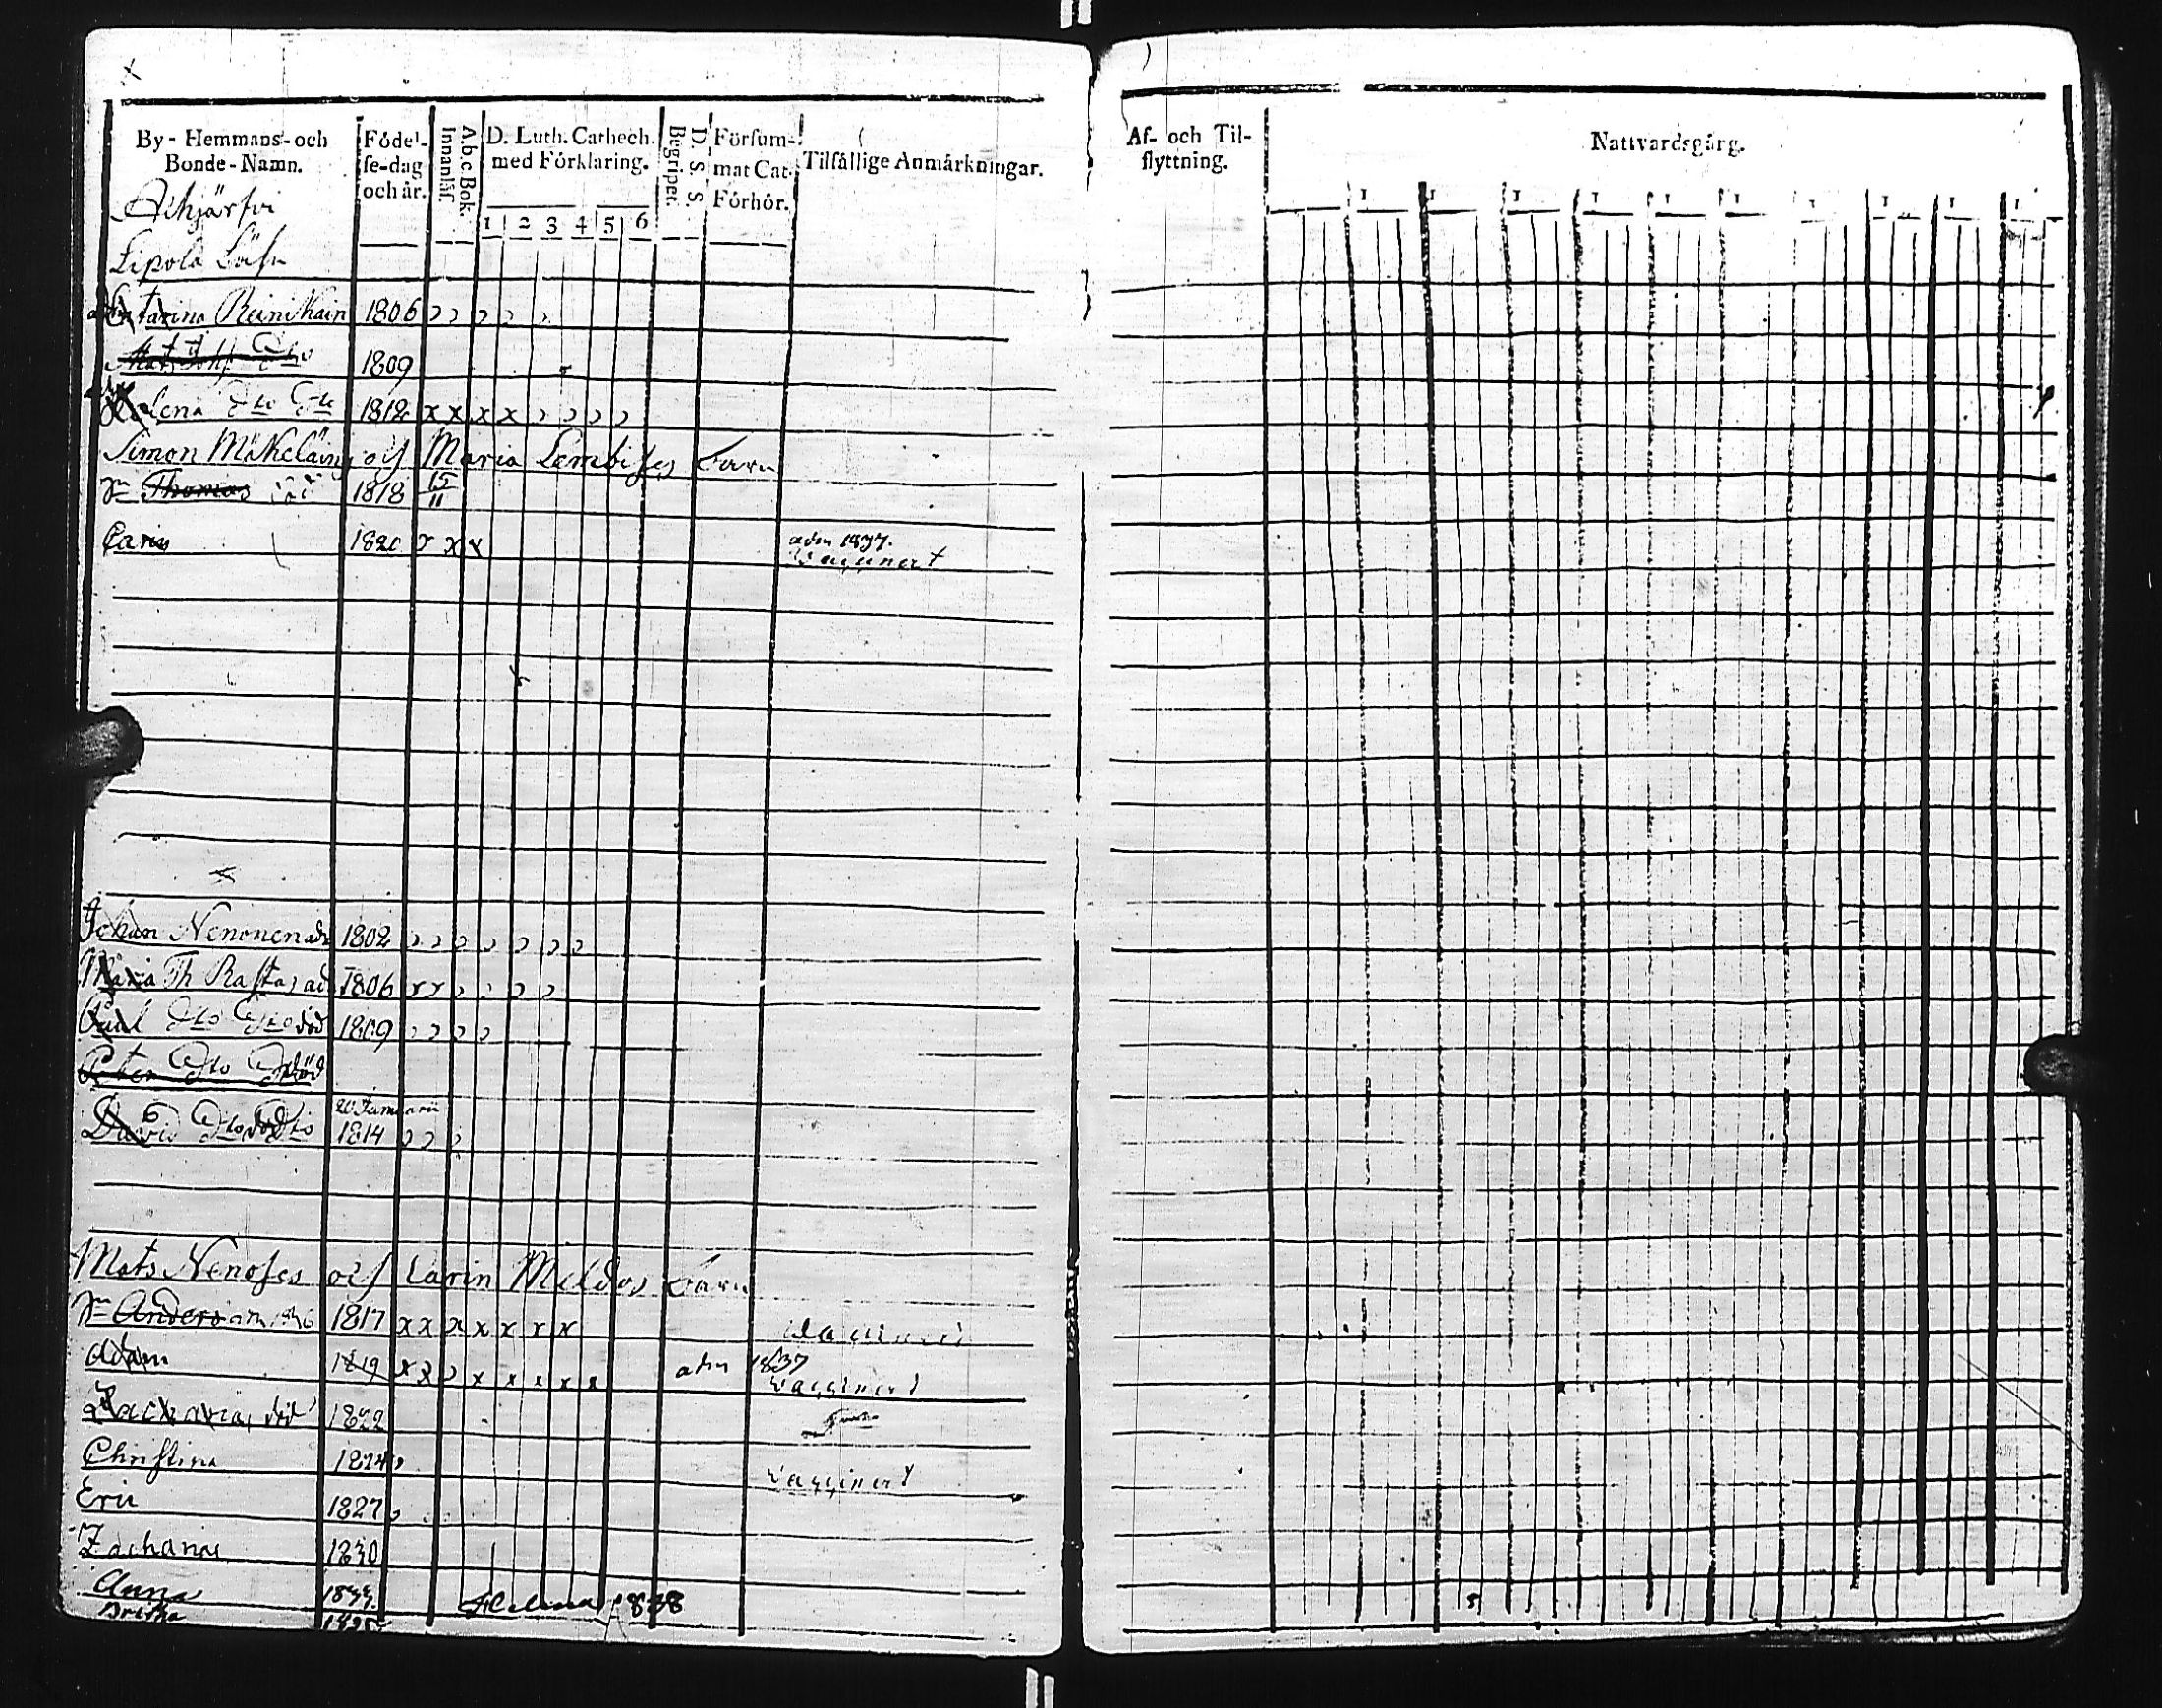 By-Hemmans-och Bonde-Namn.
Födel-se-dag och år.
A.b.c Bok. Innanläs.
D. Luth. Cathech. med Förklaring.
1 2 3 4 5 6
D. S. S. Begriper.
Försum-mat Cat. Förhör.
Tilfällige Anmärkningar.
Af- och Til-flyttning.
Nattvardsgång.
Lipola
Catarina Reinikain 1806
1809
Helena Dto Dto 1812 x x x x
Simon Mäkeläin och Maria Lembises barn
Sn Thomas 1818 15/11
Carin x x adm 1837.
Vaccinert
Johan Nenonen adm 1802
Maria Th Rastas ad 1806
Paul Dto Dto död 1809
Peter Dto Dto död
20 Januarii
David Dto död Dto 1814
Mats Nenoses och Carin Mildos barn
Sn Anders adm 1836 1817 x x x x x x x Vaccinert
Adam 1819 x x x x x x x adm 1837
Vaccinert
Zacharias död 1822
Christina 1824 Vaccinert
Eric 1827
Zacharias 1830
Anna Helena 1838
Britha 1835